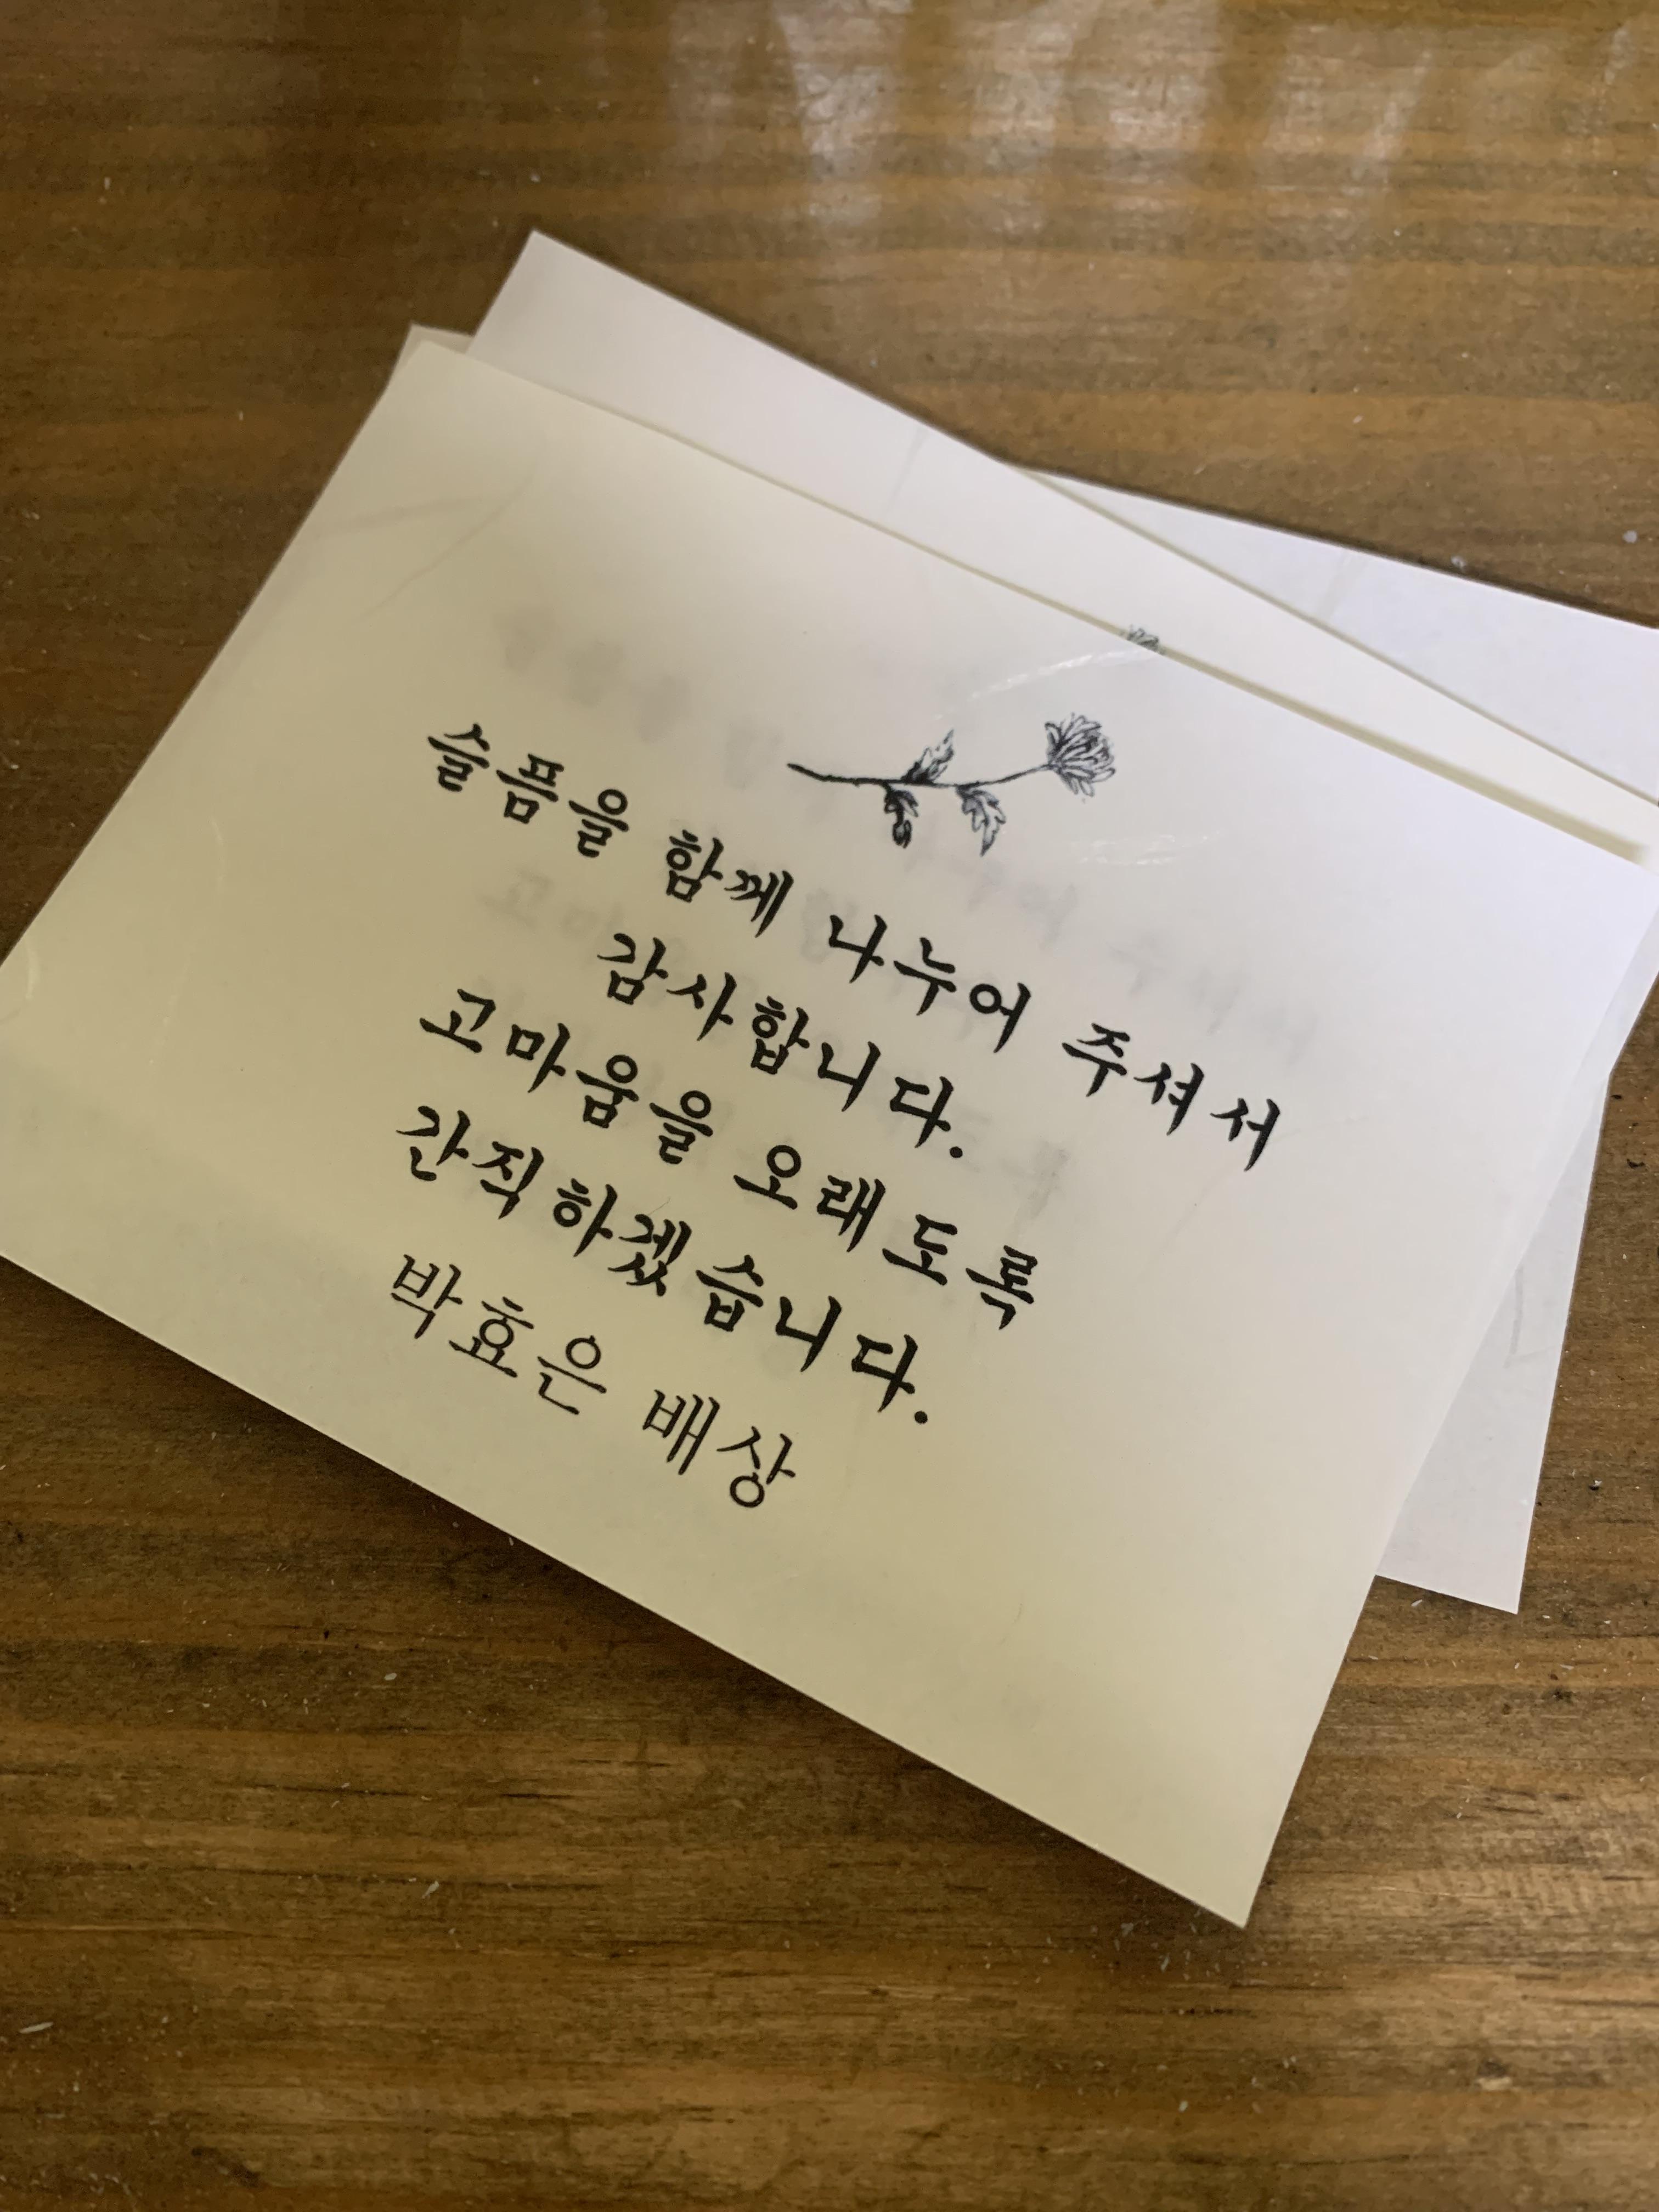 슬픔을 함께 나누어 주셔서
감사합니다.
고마움을 오래도록
간직하겠습니다.
박효은 배상